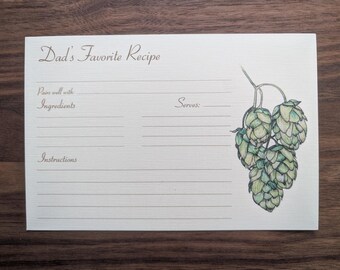 Dad's Favorite Recipe
Pairs well with
Ingredients Serves:
Instructions